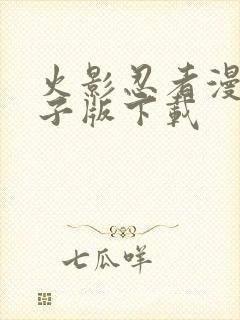 火影忍者漫
子版下載
七瓜咩